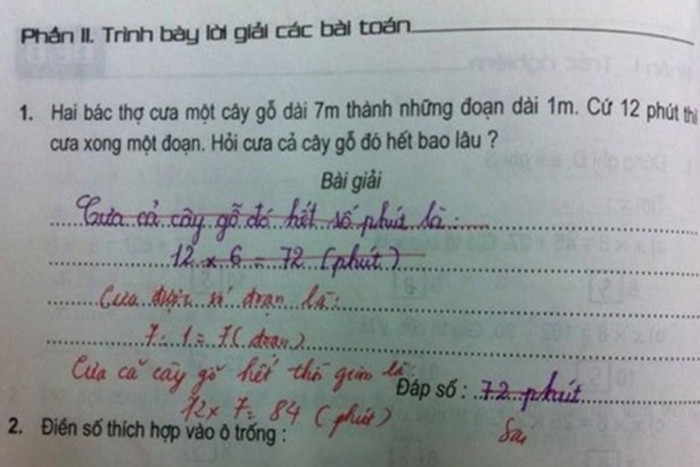 Phần II. Trình bày lời giải các bài toán
1. Hai bác thợ cưa một cây gỗ dài 7m thành những đoạn dài 1m. Cứ 12 phút thì
cưa xong một đoạn. Hỏi cưa cả cây gỗ đó hết bao lâu ?
Bài giải
Cưa cả cây gỗ đó hết số phút là :
12 x 6 = 72 (phút)
Cưa được số đoạn là:
7 : 1 = 7 (đoạn)
Cưa cả cây gỗ hết thời gian là
Đáp số : 72 phút
12 x 7 = 84 (phút)
Sai
2. Điền số thích hợp vào ô trống :